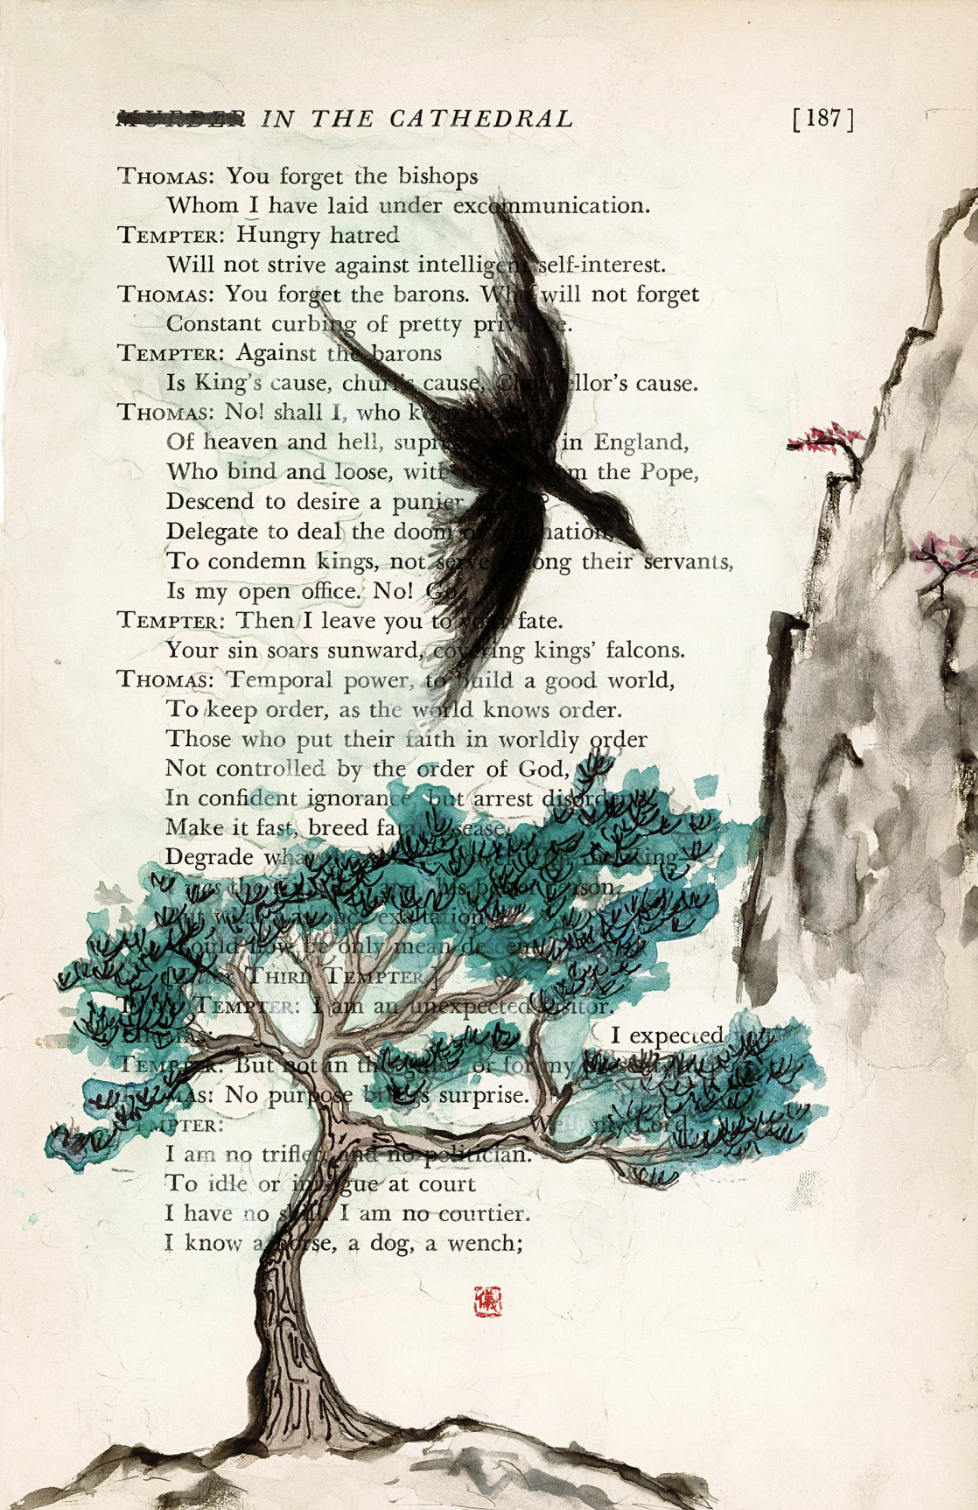 MURDER IN THE CATHEDRAL [187]
THOMAS: You forget the bishops
Whom I have laid under excommunication.
TEMPTER: Hungry hatred
Will not strive against intelligent self-interest.
THOMAS: You forget the barons. Who will not forget
Constant curbing of pretty privilege.
TEMPTER: Against the barons
Is King's cause, churl's cause, Chancellor's cause.
THOMAS: No! shall I, who keep the
Of heaven and hell, supreme in England,
Who bind and loose, with from the Pope,
Descend to desire a punier
Delegate to deal the doom of damnation,
To condemn kings, not serve among their servants,
Is my open office. No! Go.
TEMPTER: Then I leave you to your fate.
Your sin soars sunward, covering kings' falcons.
THOMAS: Temporal power, to build a good world,
To keep order, as the world knows order.
Those who put their faith in worldly order
Not controlled by the order of God,
In confident ignorance, but arrest disorder,
Make it fast, breed fatal disease,
Degrade what King—
his reason,
what was once exaltation
Would now be only mean descent.
THIRD TEMPTER
TEMPTER: I am an unexpected visitor.
THOMAS: I expected
TEMPTER: But not in this or for my present
THOMAS: No purpose brings surprise.
TEMPTER: Well, my Lord,
I am no trifler, and no politician.
To idle or intrigue at court
I have no skill. I am no courtier.
I know a horse, a dog, a wench;
儀